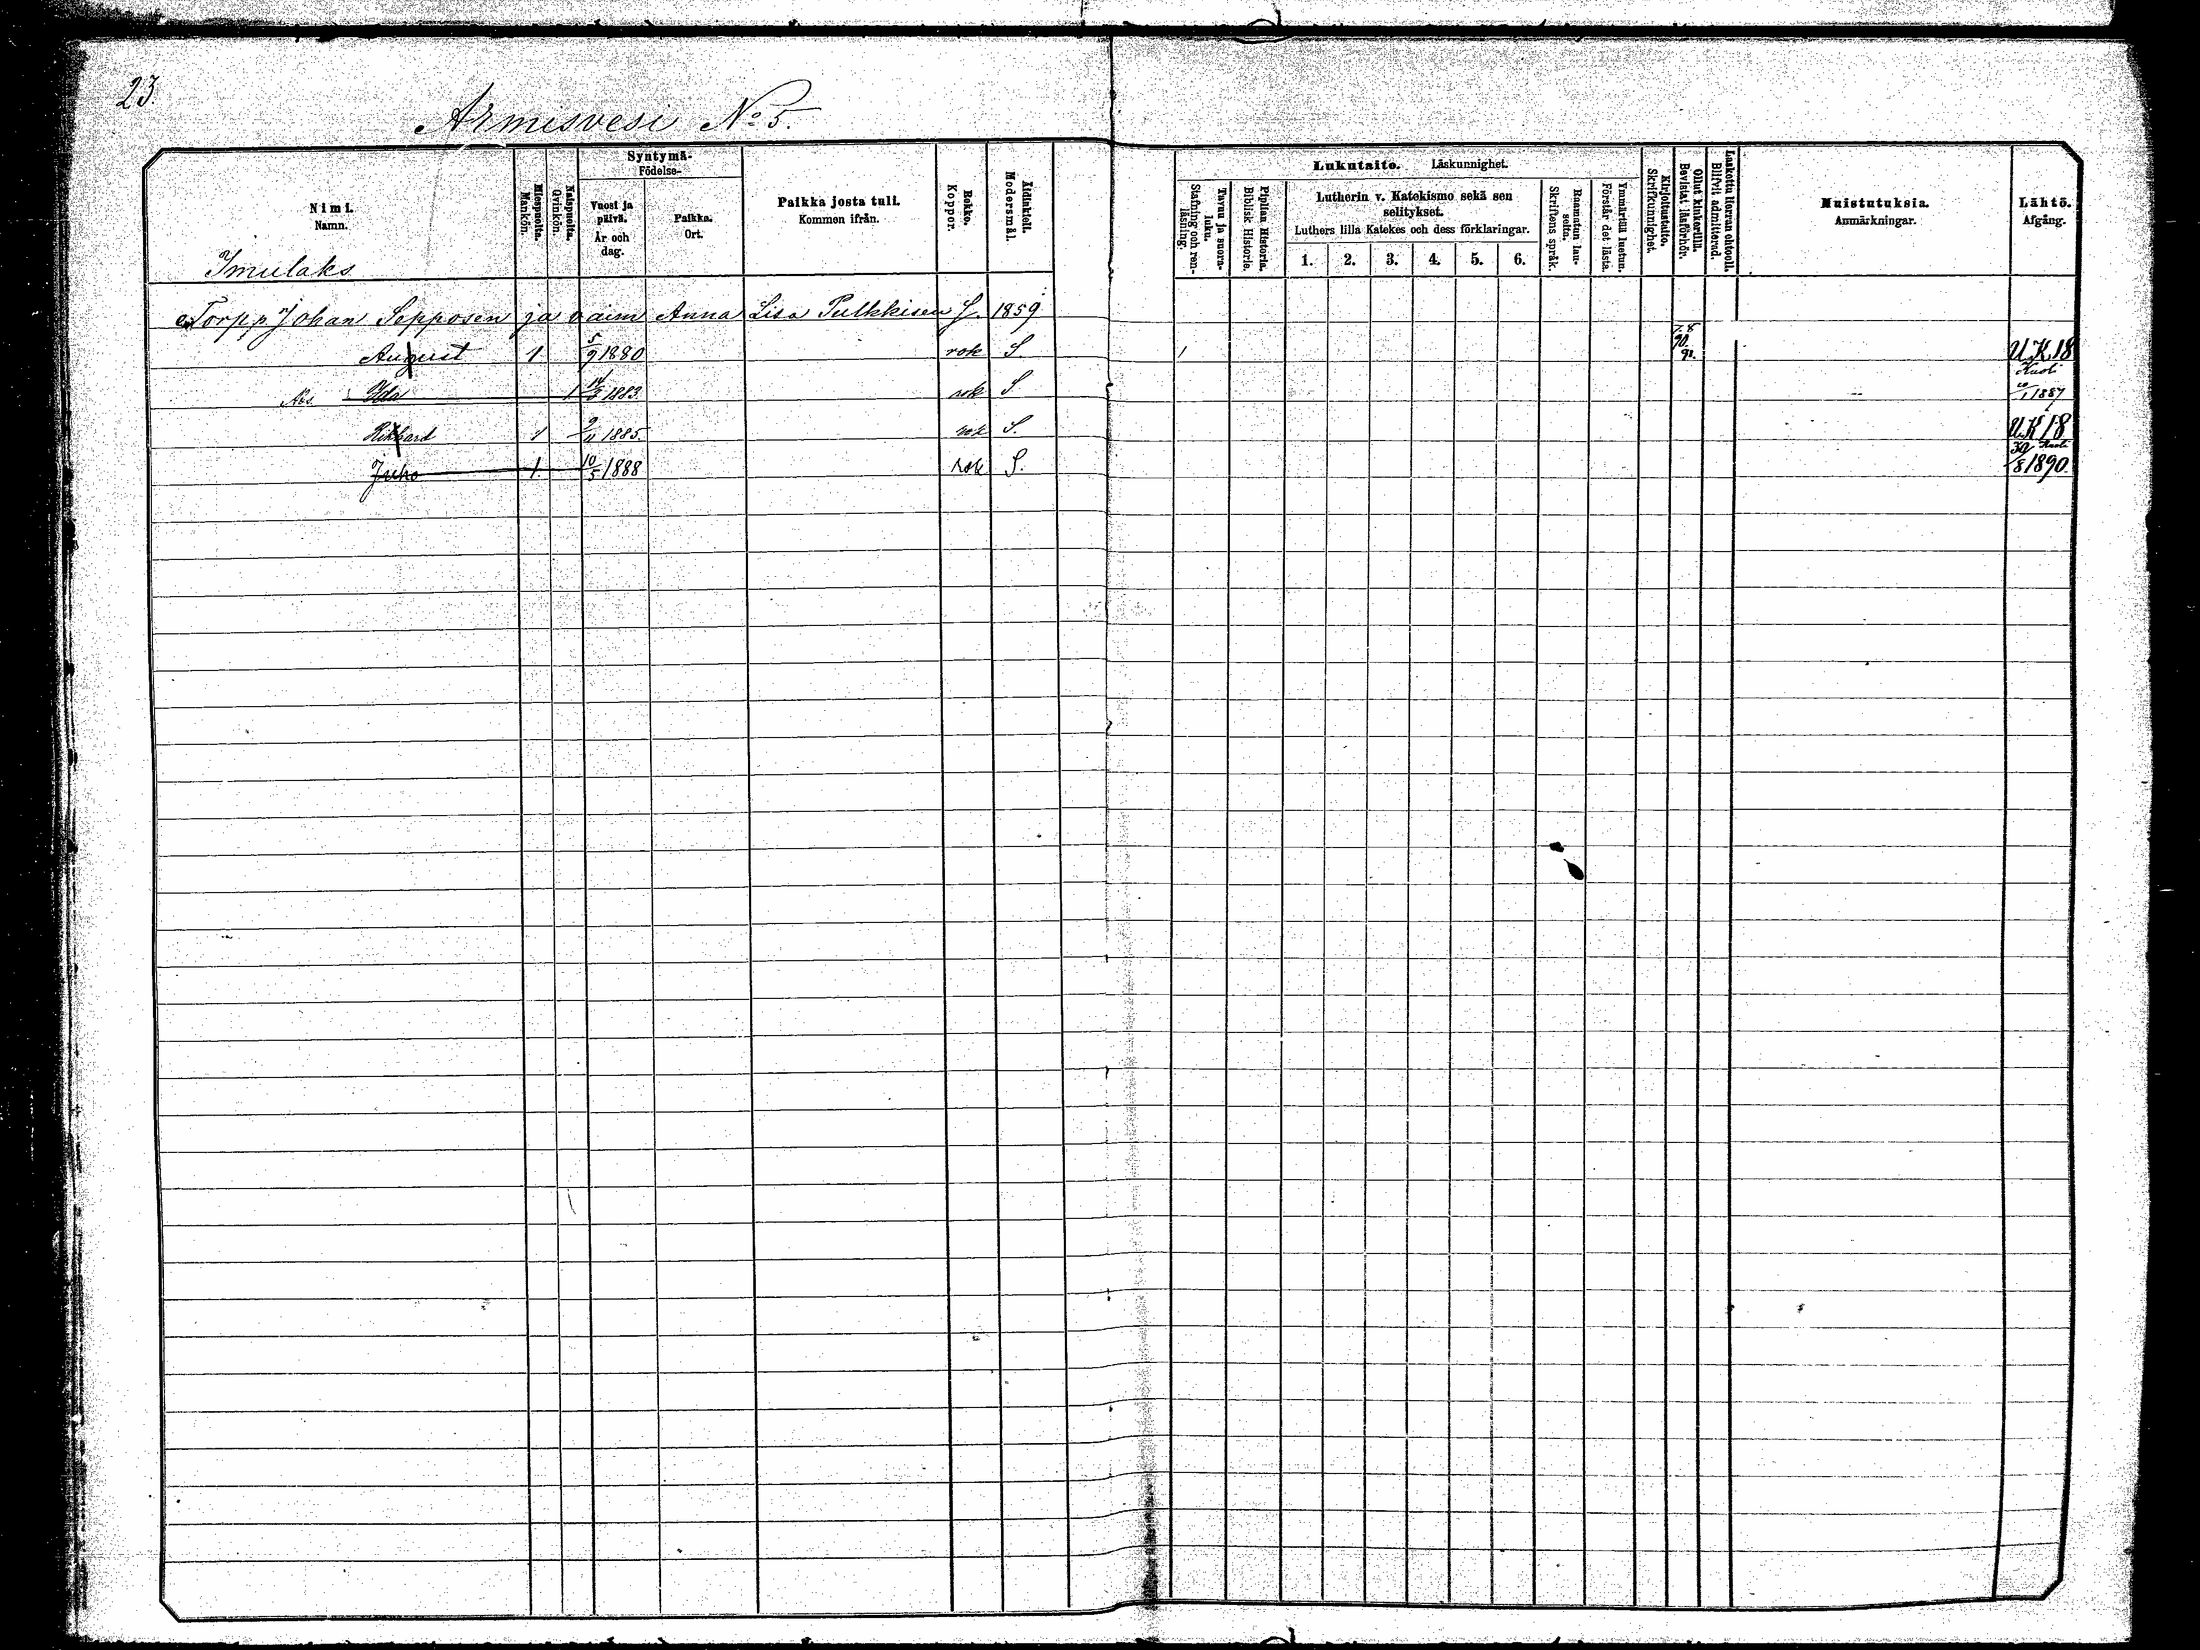 23.
Armisvesi No 5.
Nimi. Namn.
Miespuolta. Mankön.
Naispuolta. Qvinkön.
Syntymä- Födelse-
Vuosi ja päivä. År och dag.
Paikka. Ort.
Paikka josta tuli. Kommen ifrån.
Rokko. Koppor.
Äidinkieli. Modersmål.
Lukutaito. Läskunnighet.
Tavuu ja suora-luku. Stafning och ren-läsning.
Piplian Historia. Biblisk Historie.
Lutherin v. Katekismo sekä sen selitykset.
Luthers lilla Katekes och dess förklaringar.
1. 2. 3. 4. 5. 6.
Raamatun lau-seita. Skriftens språk.
Ymmärtää luetun. Förstår det lästa.
Kirjoitustaito. Skrifkunnighet.
Ollut kinkerillä. Bevistat läsförhör.
Laskettu Herran ehtooll. Blifvit admitterad.
Muistutuksia. Anmärkningar.
Lähtö. Afgång.
Imulaks
Torpp Johan Sepposen ja vaim Anna Lisa Pulkkisen S. 1859
August 1 5/9 1880 rok S 1 7.8 90. 91. U.K.18
Ida 1 1883 rok S Kuoli 1887
Rikhard 1 9/11 1885. rok S. U.K 18
Juho 1 10/5 1888 rok S. 30/8 Kuoli 1890.